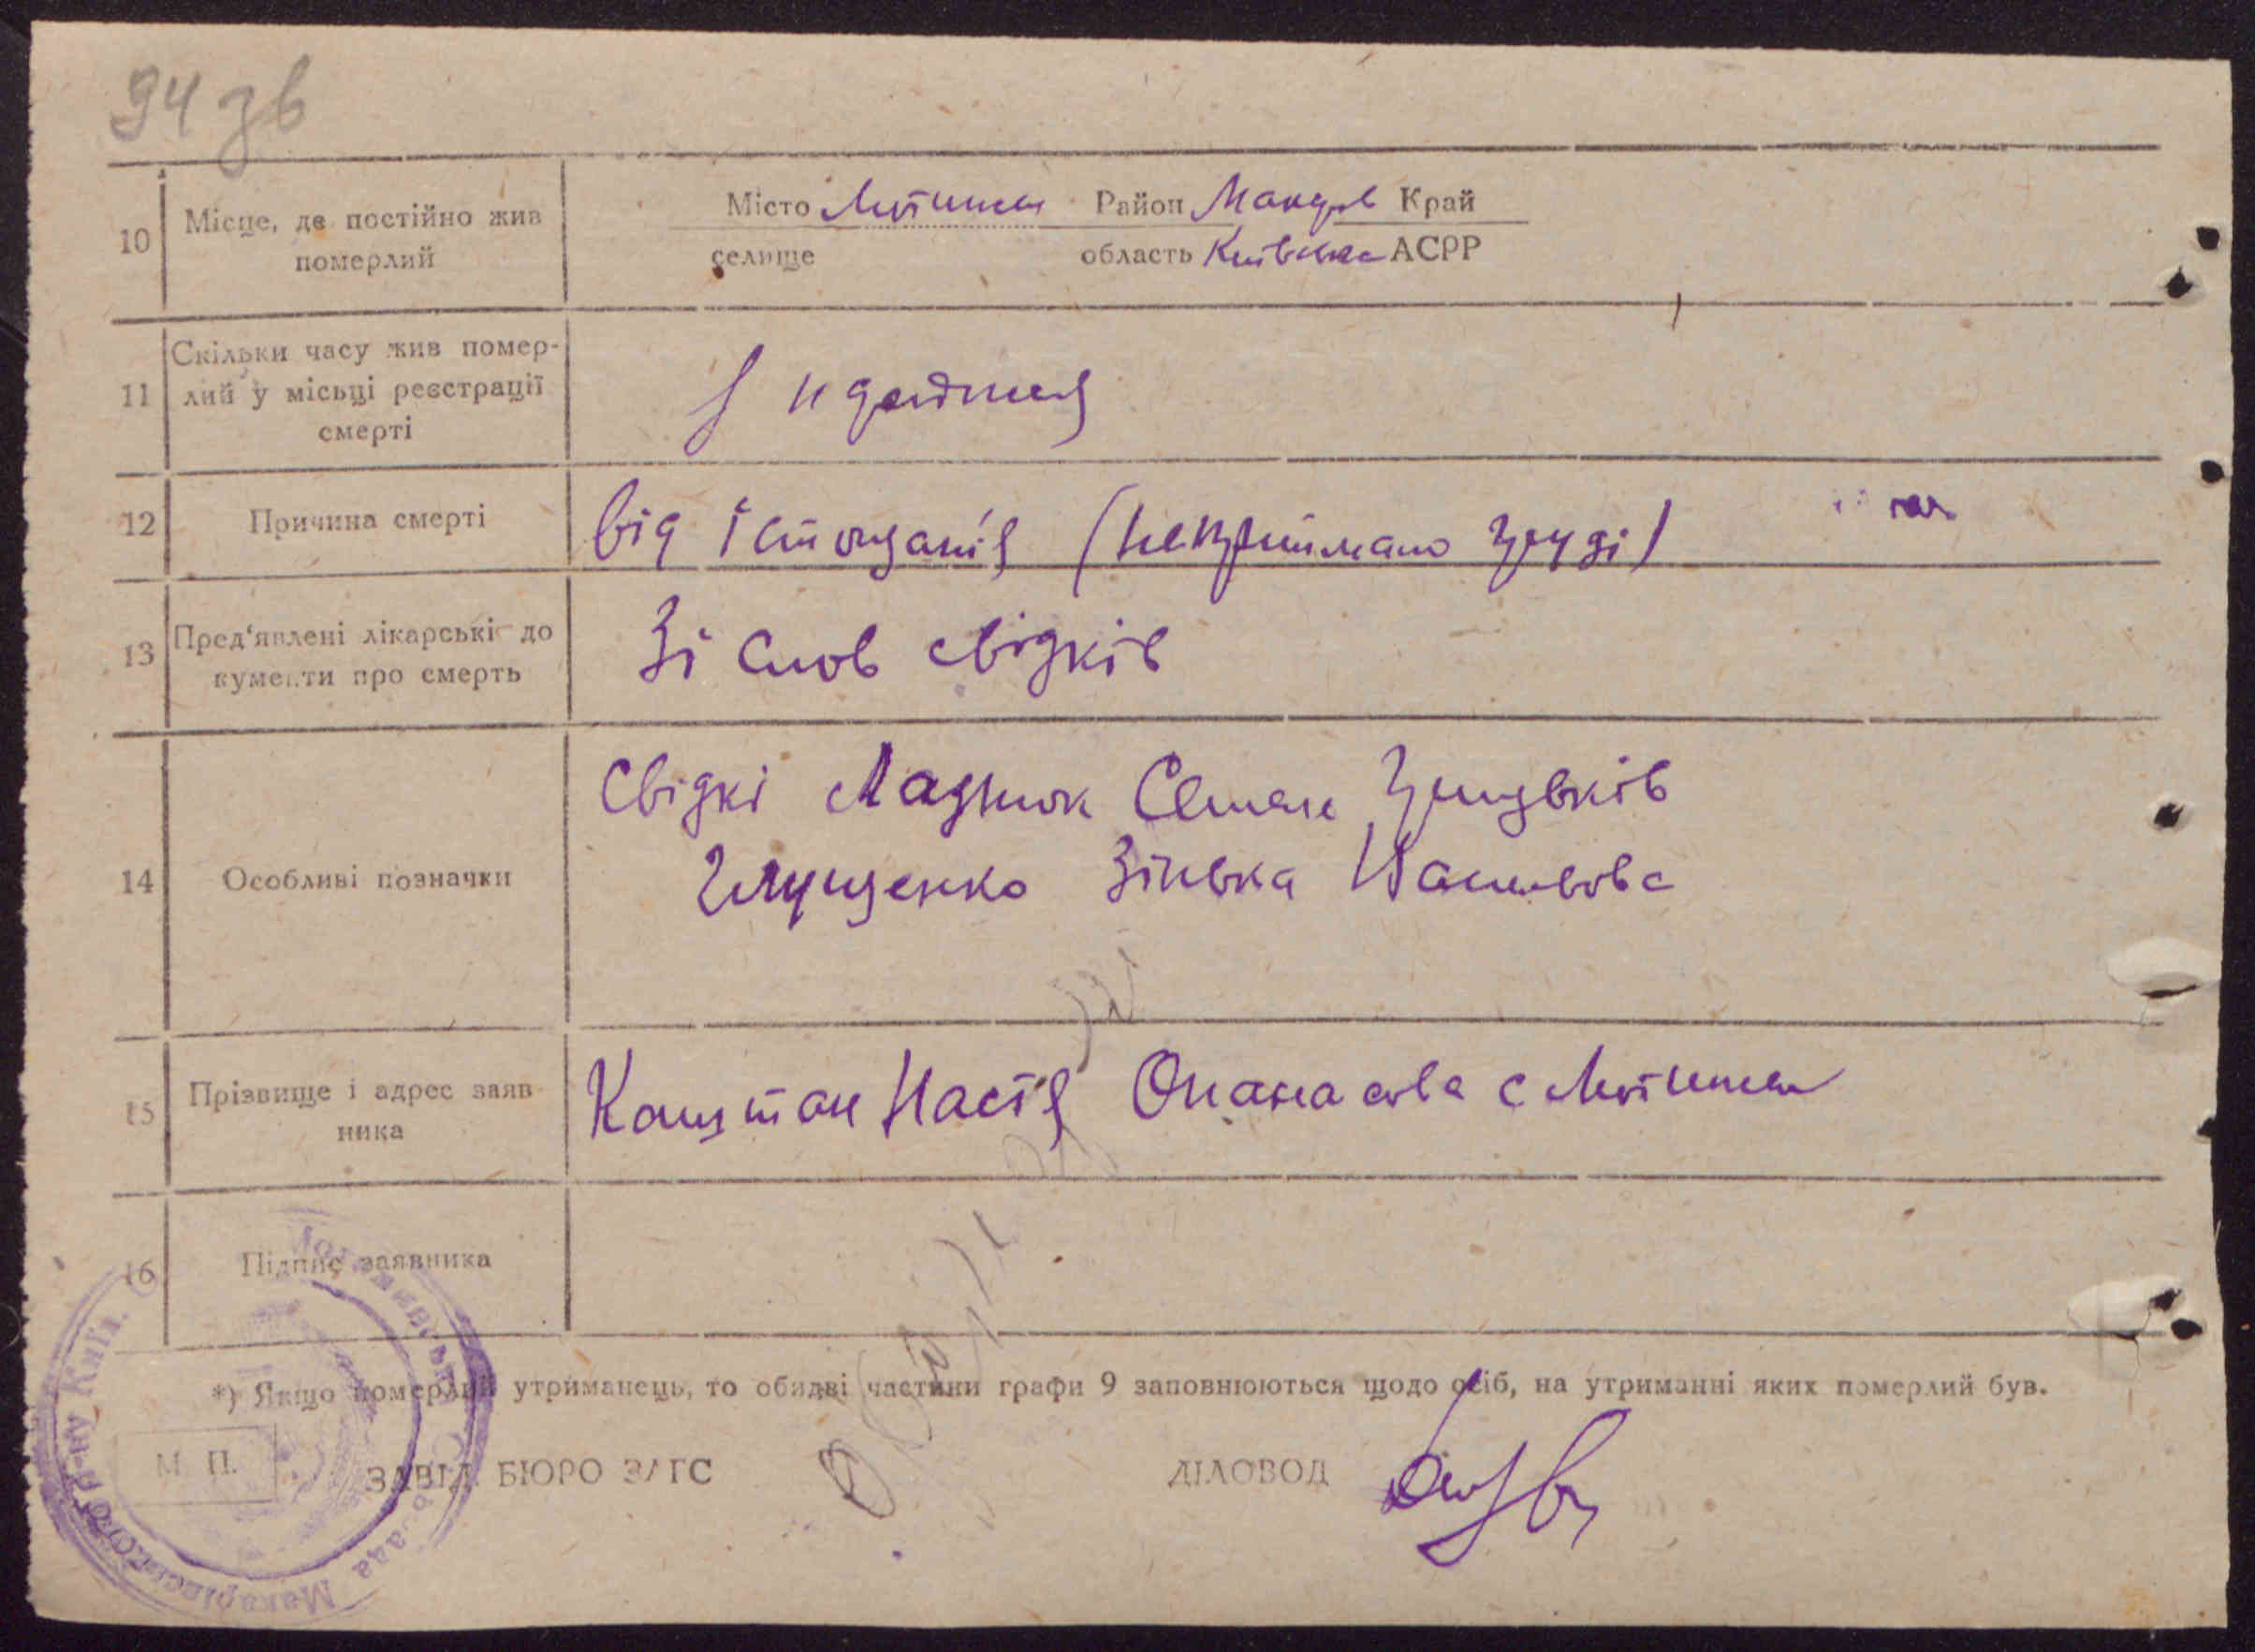 94 зв
10 Місце, де постійно жив померлий
Місто Мотижин Район Макарів Край
селище область Київська АСРР
11 Скільки часу жив помер-
лий у місьці реєстрації
смерті
12 Причина смерті
від (неприймало груді)
13 Пред'явлені лікарські до
кументи про смерть
Зі слов свідків
14 Особливі позначки
Свідкі Ладнюк Семен
Глущенко Зінька
15 Прізвище і адрес заяв-
ника
Настя Опанасова с Мотижин
16 Підпис заявника
*) Якщо померлий утриманець, то обидві частини графи 9 заповнюються щодо осіб, на утриманні яких померлий був.
М. П. ЗАВІД. БЮРО ЗАГС ДІЛОВОД